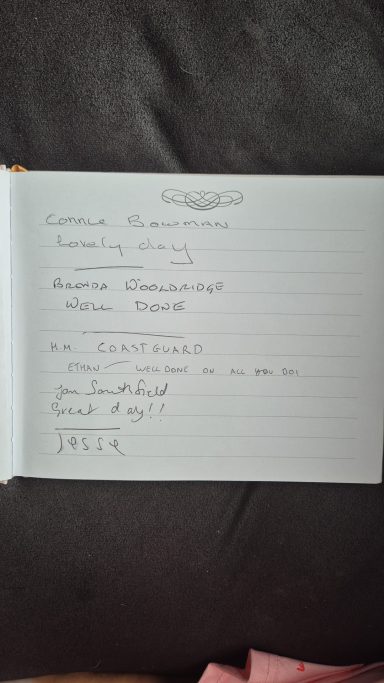 Connie Bowman
Lovely day
Brenda Wooldridge
Well Done
H.M. Coastguard
Ethan – Well done on all you do!
Southfield
Great day!!
Jesse